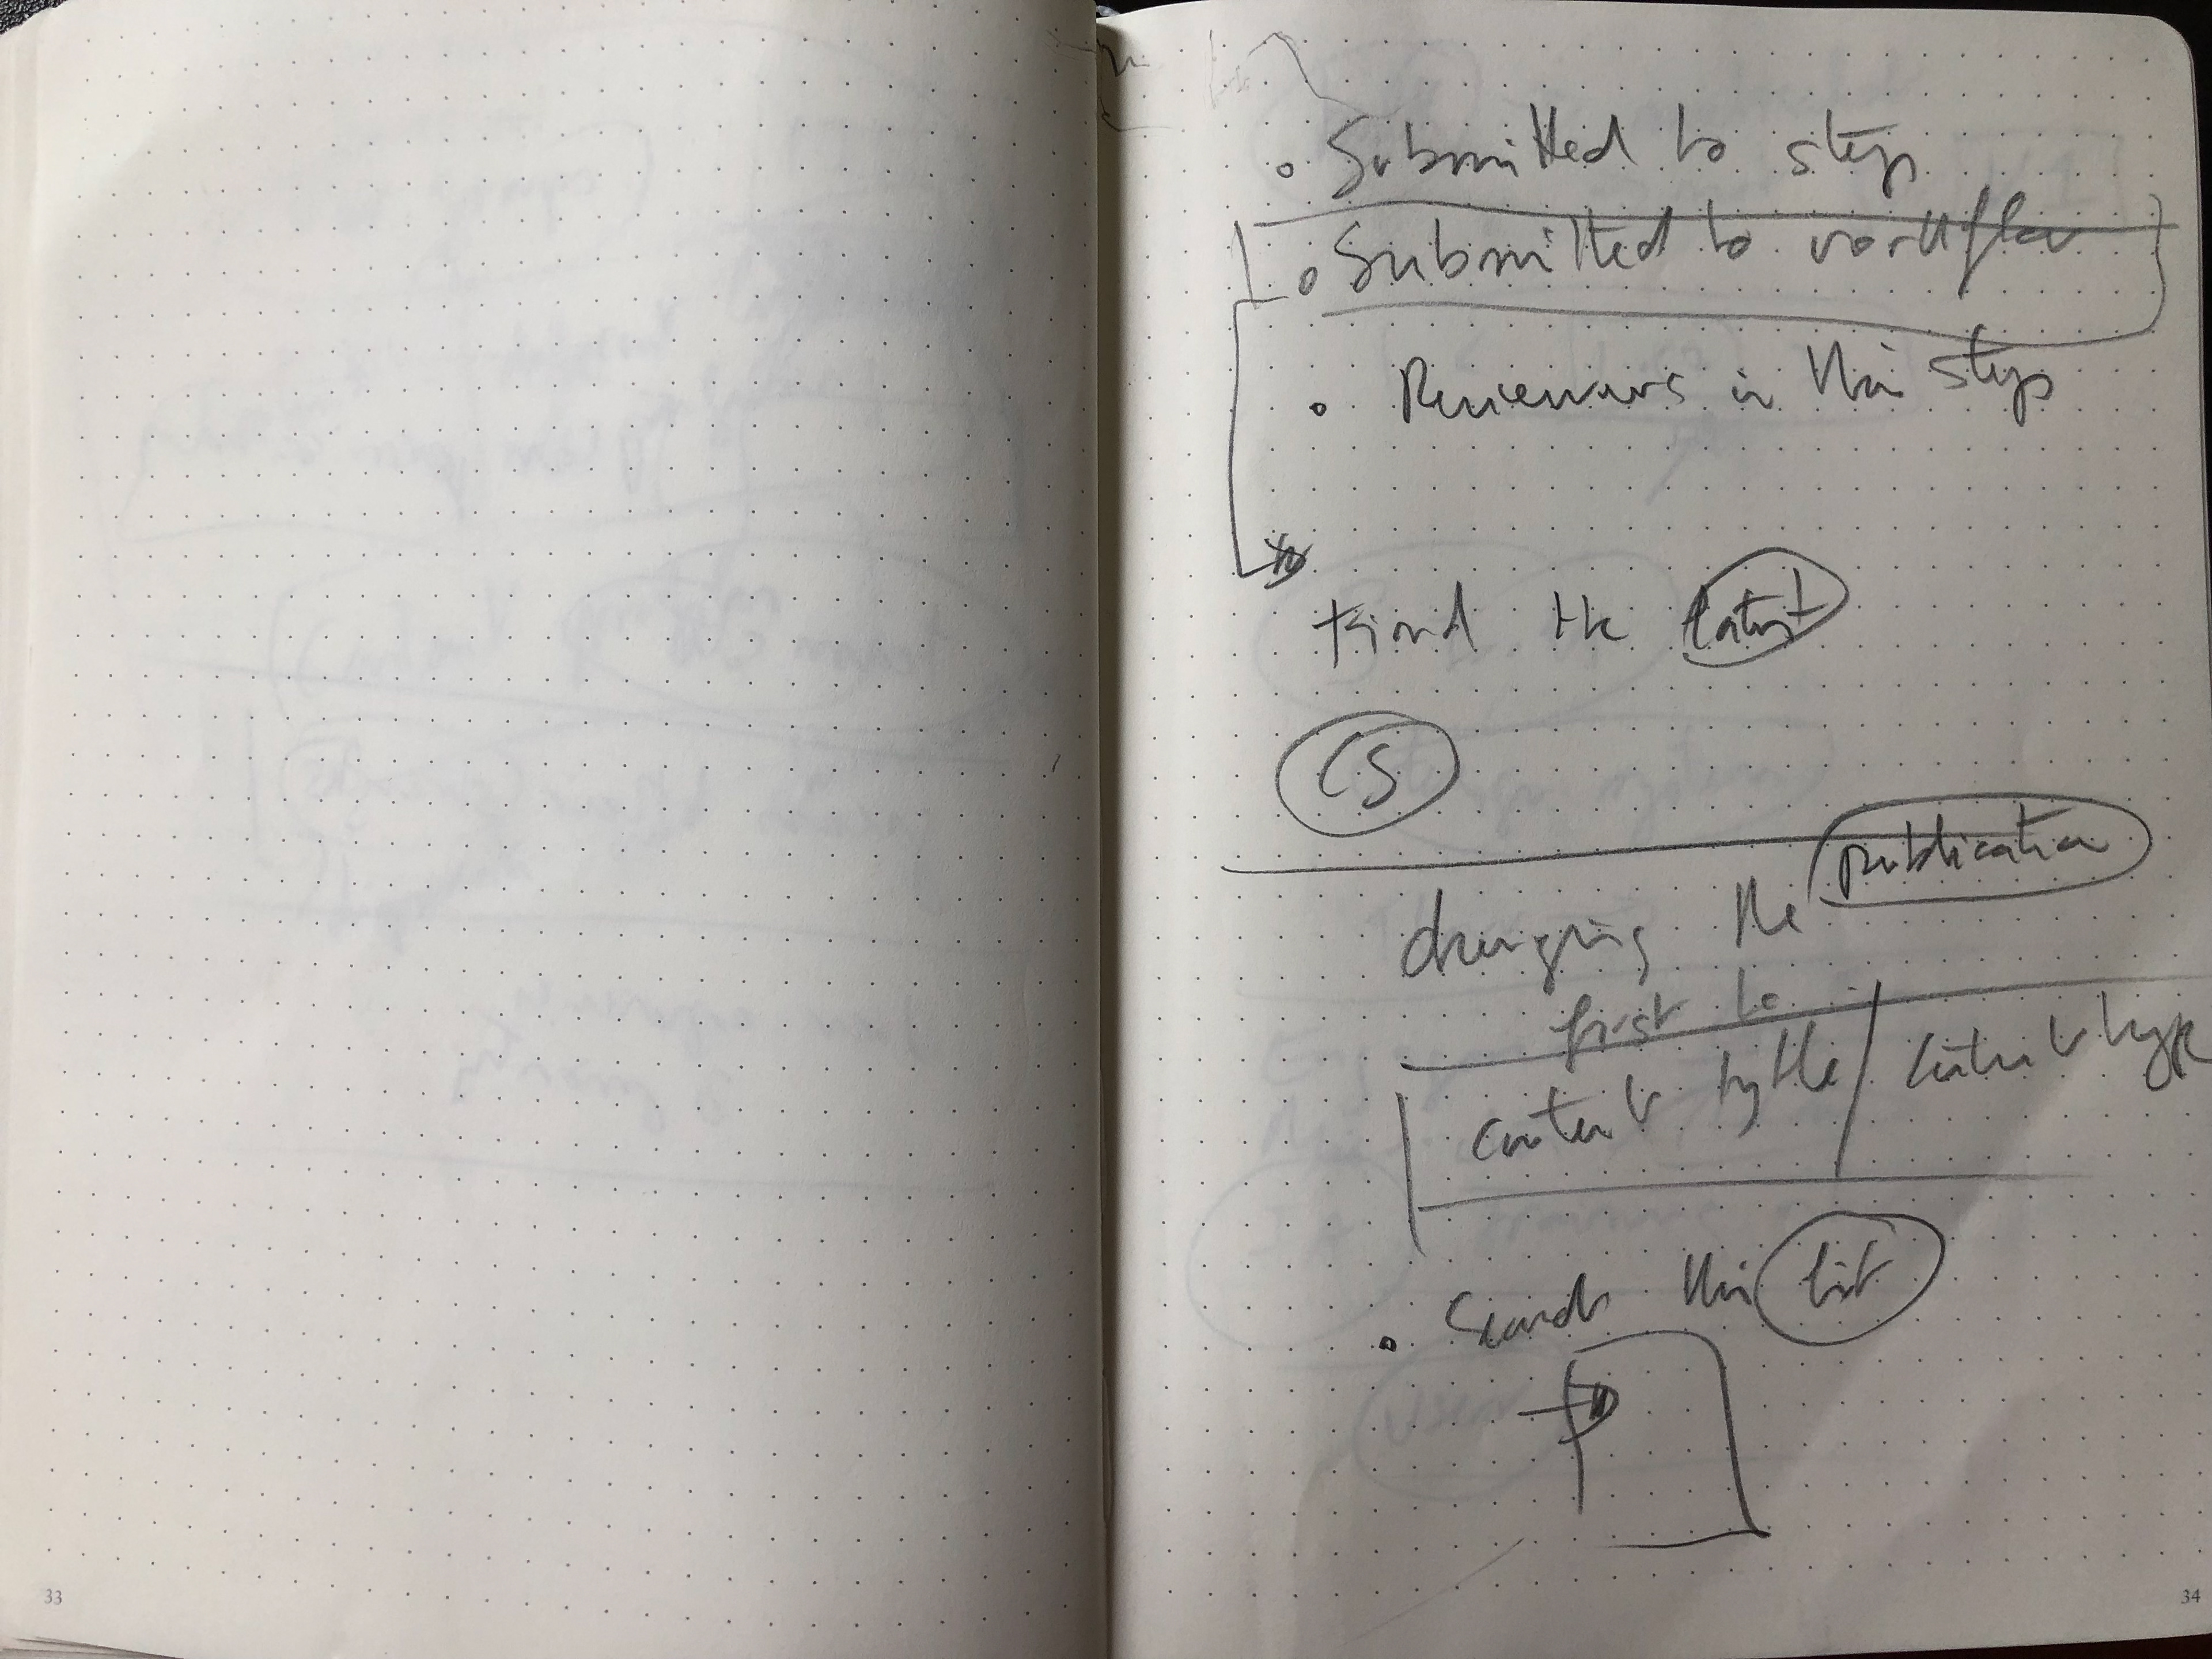 Submitted to step
Submitted to workflow
Reviewers in this step
Find the latest
CS
publication
changing the
first to
content title / content type
Search this list
33
34